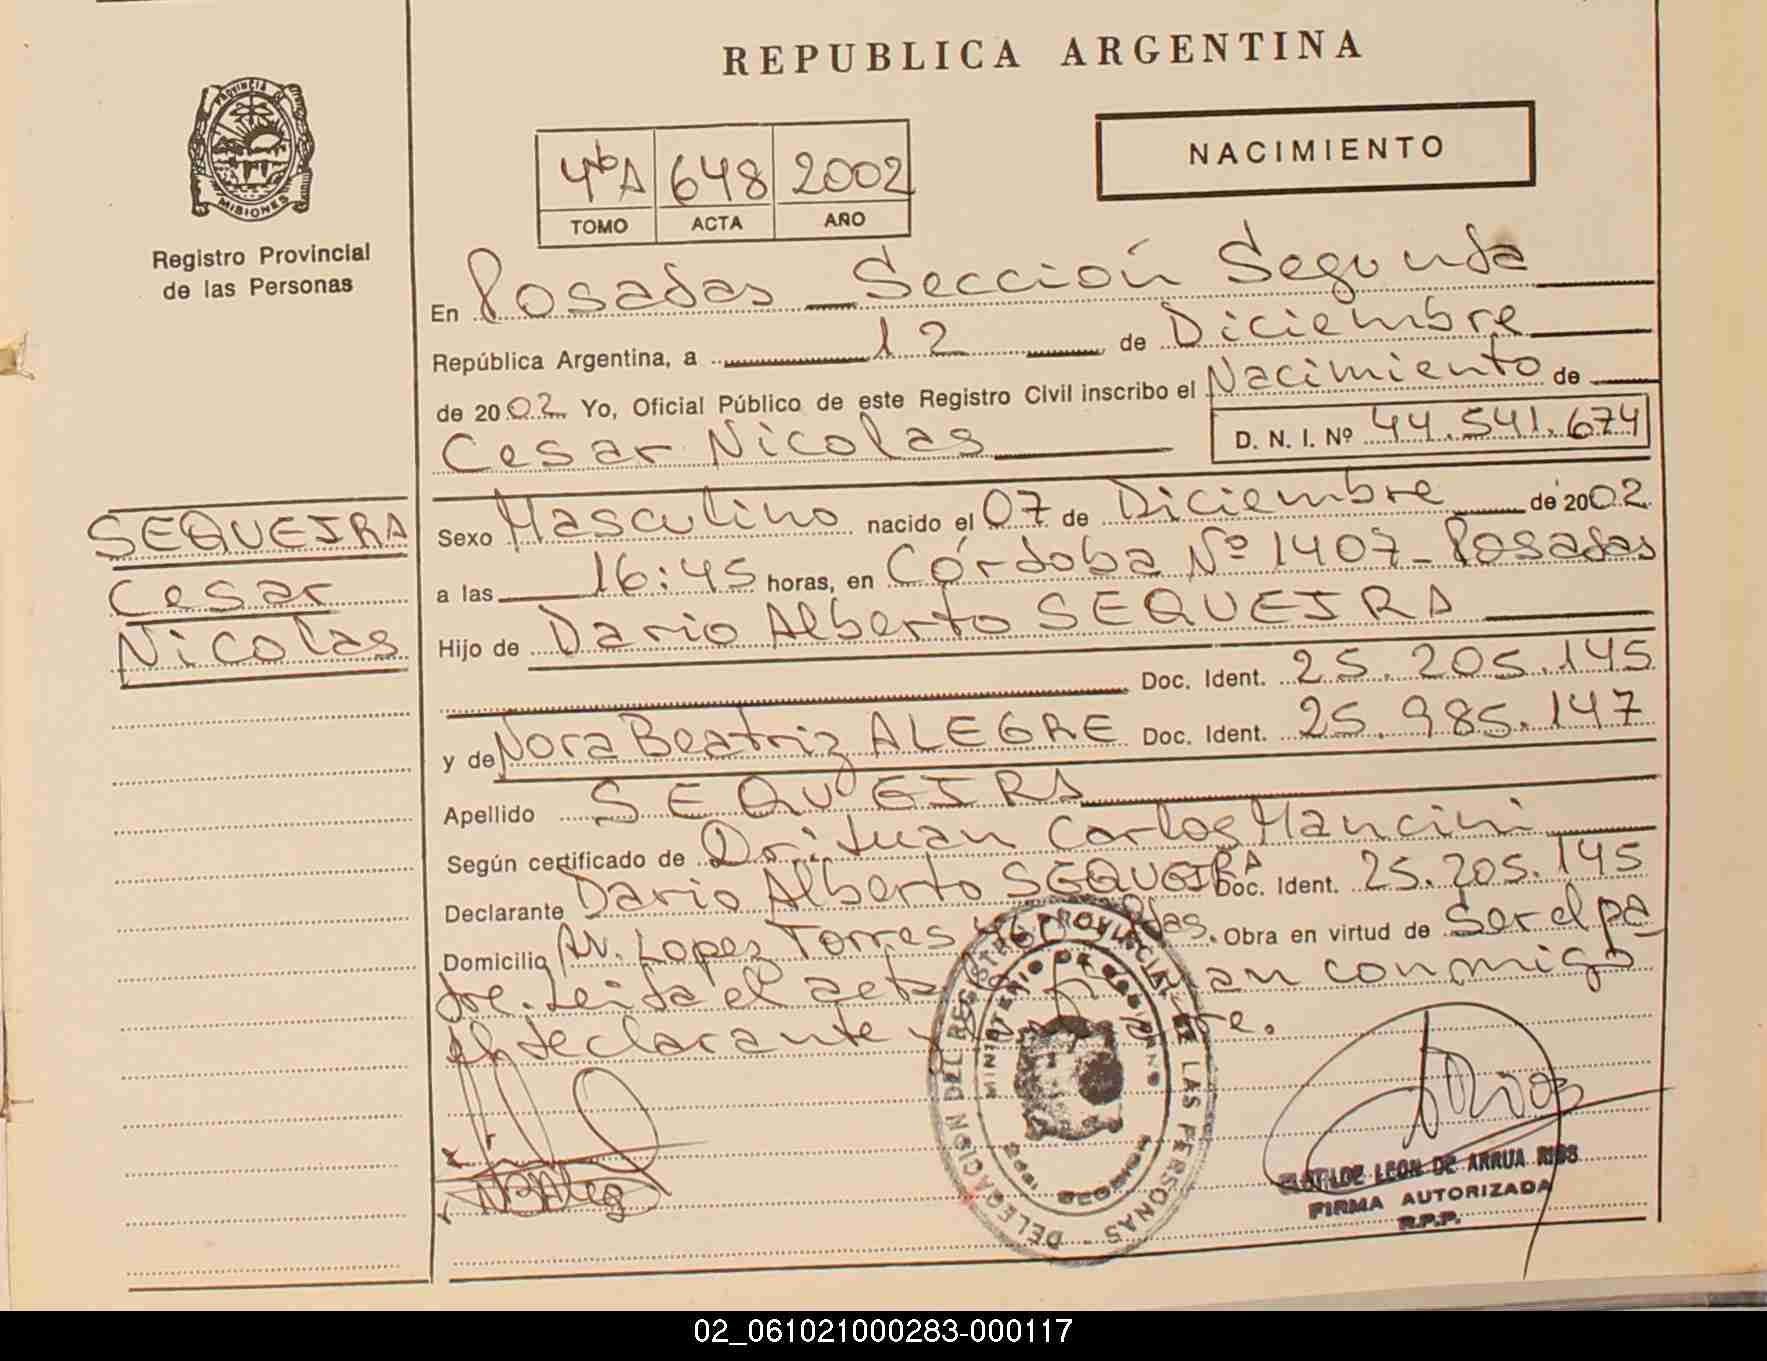 REPUBLICA ARGENTINA
PROVINCIA DE
MISIONES
Registro Provincial
de las Personas
4ᵇA 648 2002
TOMO ACTA AÑO
NACIMIENTO
En Posadas Sección Segunda
República Argentina, a 12 de Diciembre
de 2002 Yo, Oficial Público de este Registro Civil inscribo el Nacimiento de
Cesar Nicolas D. N. I. Nº 44.541.674
SEQUEIRA
Cesar
Nicolas
Sexo Masculino nacido el 07 de Diciembre de 2002
a las 16:45 horas, en Córdoba Nº 1407 - Posadas
Hijo de Dario Alberto SEQUEIRA
Doc. Ident. 25.205.145
y de Nora Beatriz ALEGRE Doc. Ident. 25.985.147
Apellido SEQUEIRA
Según certificado de Dr: Juan Carlos Mancini
Declarante Dario Alberto SEQUEIRA Doc. Ident. 25.205.145
Domicilio Av. Lopez Torres Pdas. Obra en virtud de Ser el pa
dre. Leida el acta conmigo
el declarante y
DELEGACION DEL REGISTRO PROVINCIAL DE LAS PERSONAS
MINISTERIO DE GOBIERNO
CLOTILDE LEON DE ARRUA RIOS
FIRMA AUTORIZADA
R.P.P.
02_061021000283-000117